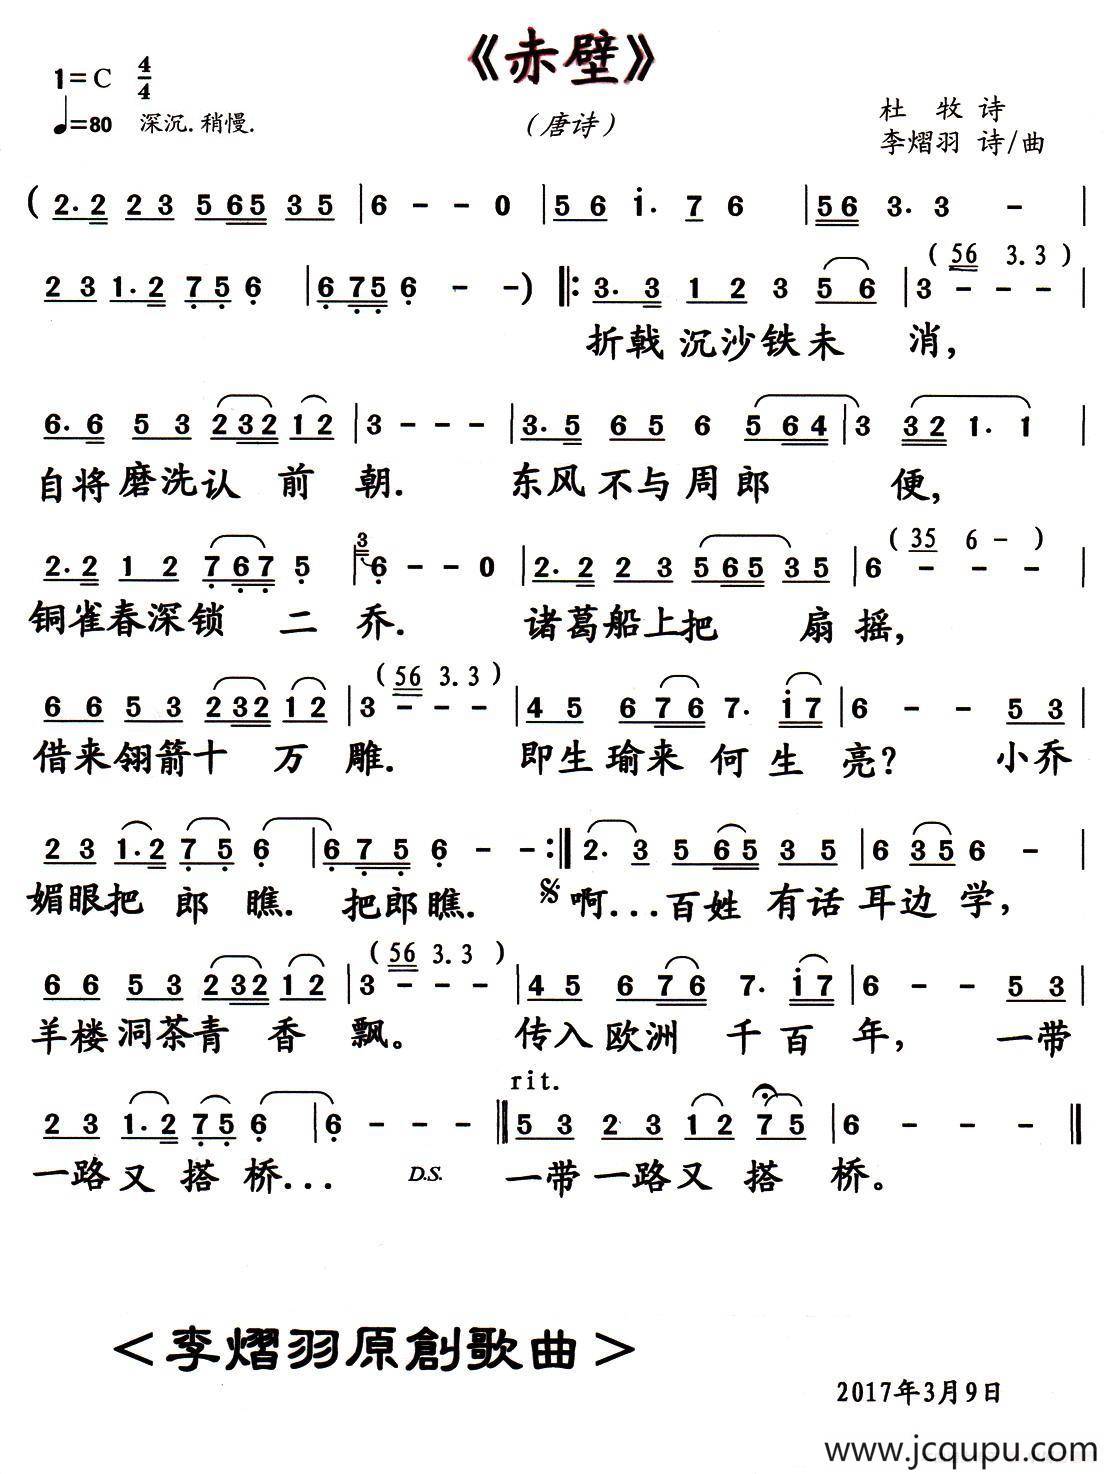 《赤壁》
1=C 4/4
♩=80 深沉.稍慢.
（唐诗）
杜 牧 诗
李熠羽 诗/曲
( 2. 2 2 3 5 65 3 5 | 6 - - 0 | 5 6 i. 7 6 | 56 3. 3 - |
(56 3.3)
2 3 1. 2 7 5 6 | 6 75 6 - -) ‖: 3. 3 1 2 3 5 6 | 3 - - - |
折戟 沉沙铁未 消，
6. 6 5 3 232 1 2 | 3 - - - | 3. 5 6 5 6 5 64 | 3 32 1. 1 |
自将 磨洗认 前 朝. 东风 不与 周 郎 便，
(35 6 -)
2. 2 1 2 7 67 5 | 3 6 - - 0 | 2. 2 2 3 565 3 5 | 6 - - - |
铜雀春深锁 二 乔. 诸葛船上把 扇 摇，
(56 3.3)
6 6 5 3 232 1 2 | 3 - - - | 4 5 6 76 7. i7 | 6 - - 5 3 |
借来翎箭十 万 雕. 即生 瑜来 何 生 亮？ 小乔
2 3 1.2 7 5 6 | 6 7 5 6 - - :‖ 2. 3 5 65 3 5 | 6 35 6 - |
媚眼把 郎 瞧. 把郎瞧. 𝄋 啊...百姓 有话 耳边 学，
(56 3.3)
6 6 5 3 232 1 2 | 3 - - - | 4 5 6 76 7. i7 | 6 - - 5 3 |
羊楼 洞茶青 香 飘。 传入 欧洲 千 百 年， 一带
rit.
2 3 1. 2 7 5 6 | 6 - - - ‖ 5 3 2 3 1 2 7 5 | 6 - - - ‖
一路 又 搭 桥... D.S. 一带 一路 又 搭 桥。
＜李熠羽原創歌曲＞
2017年3月9日
www.jcqupu.com